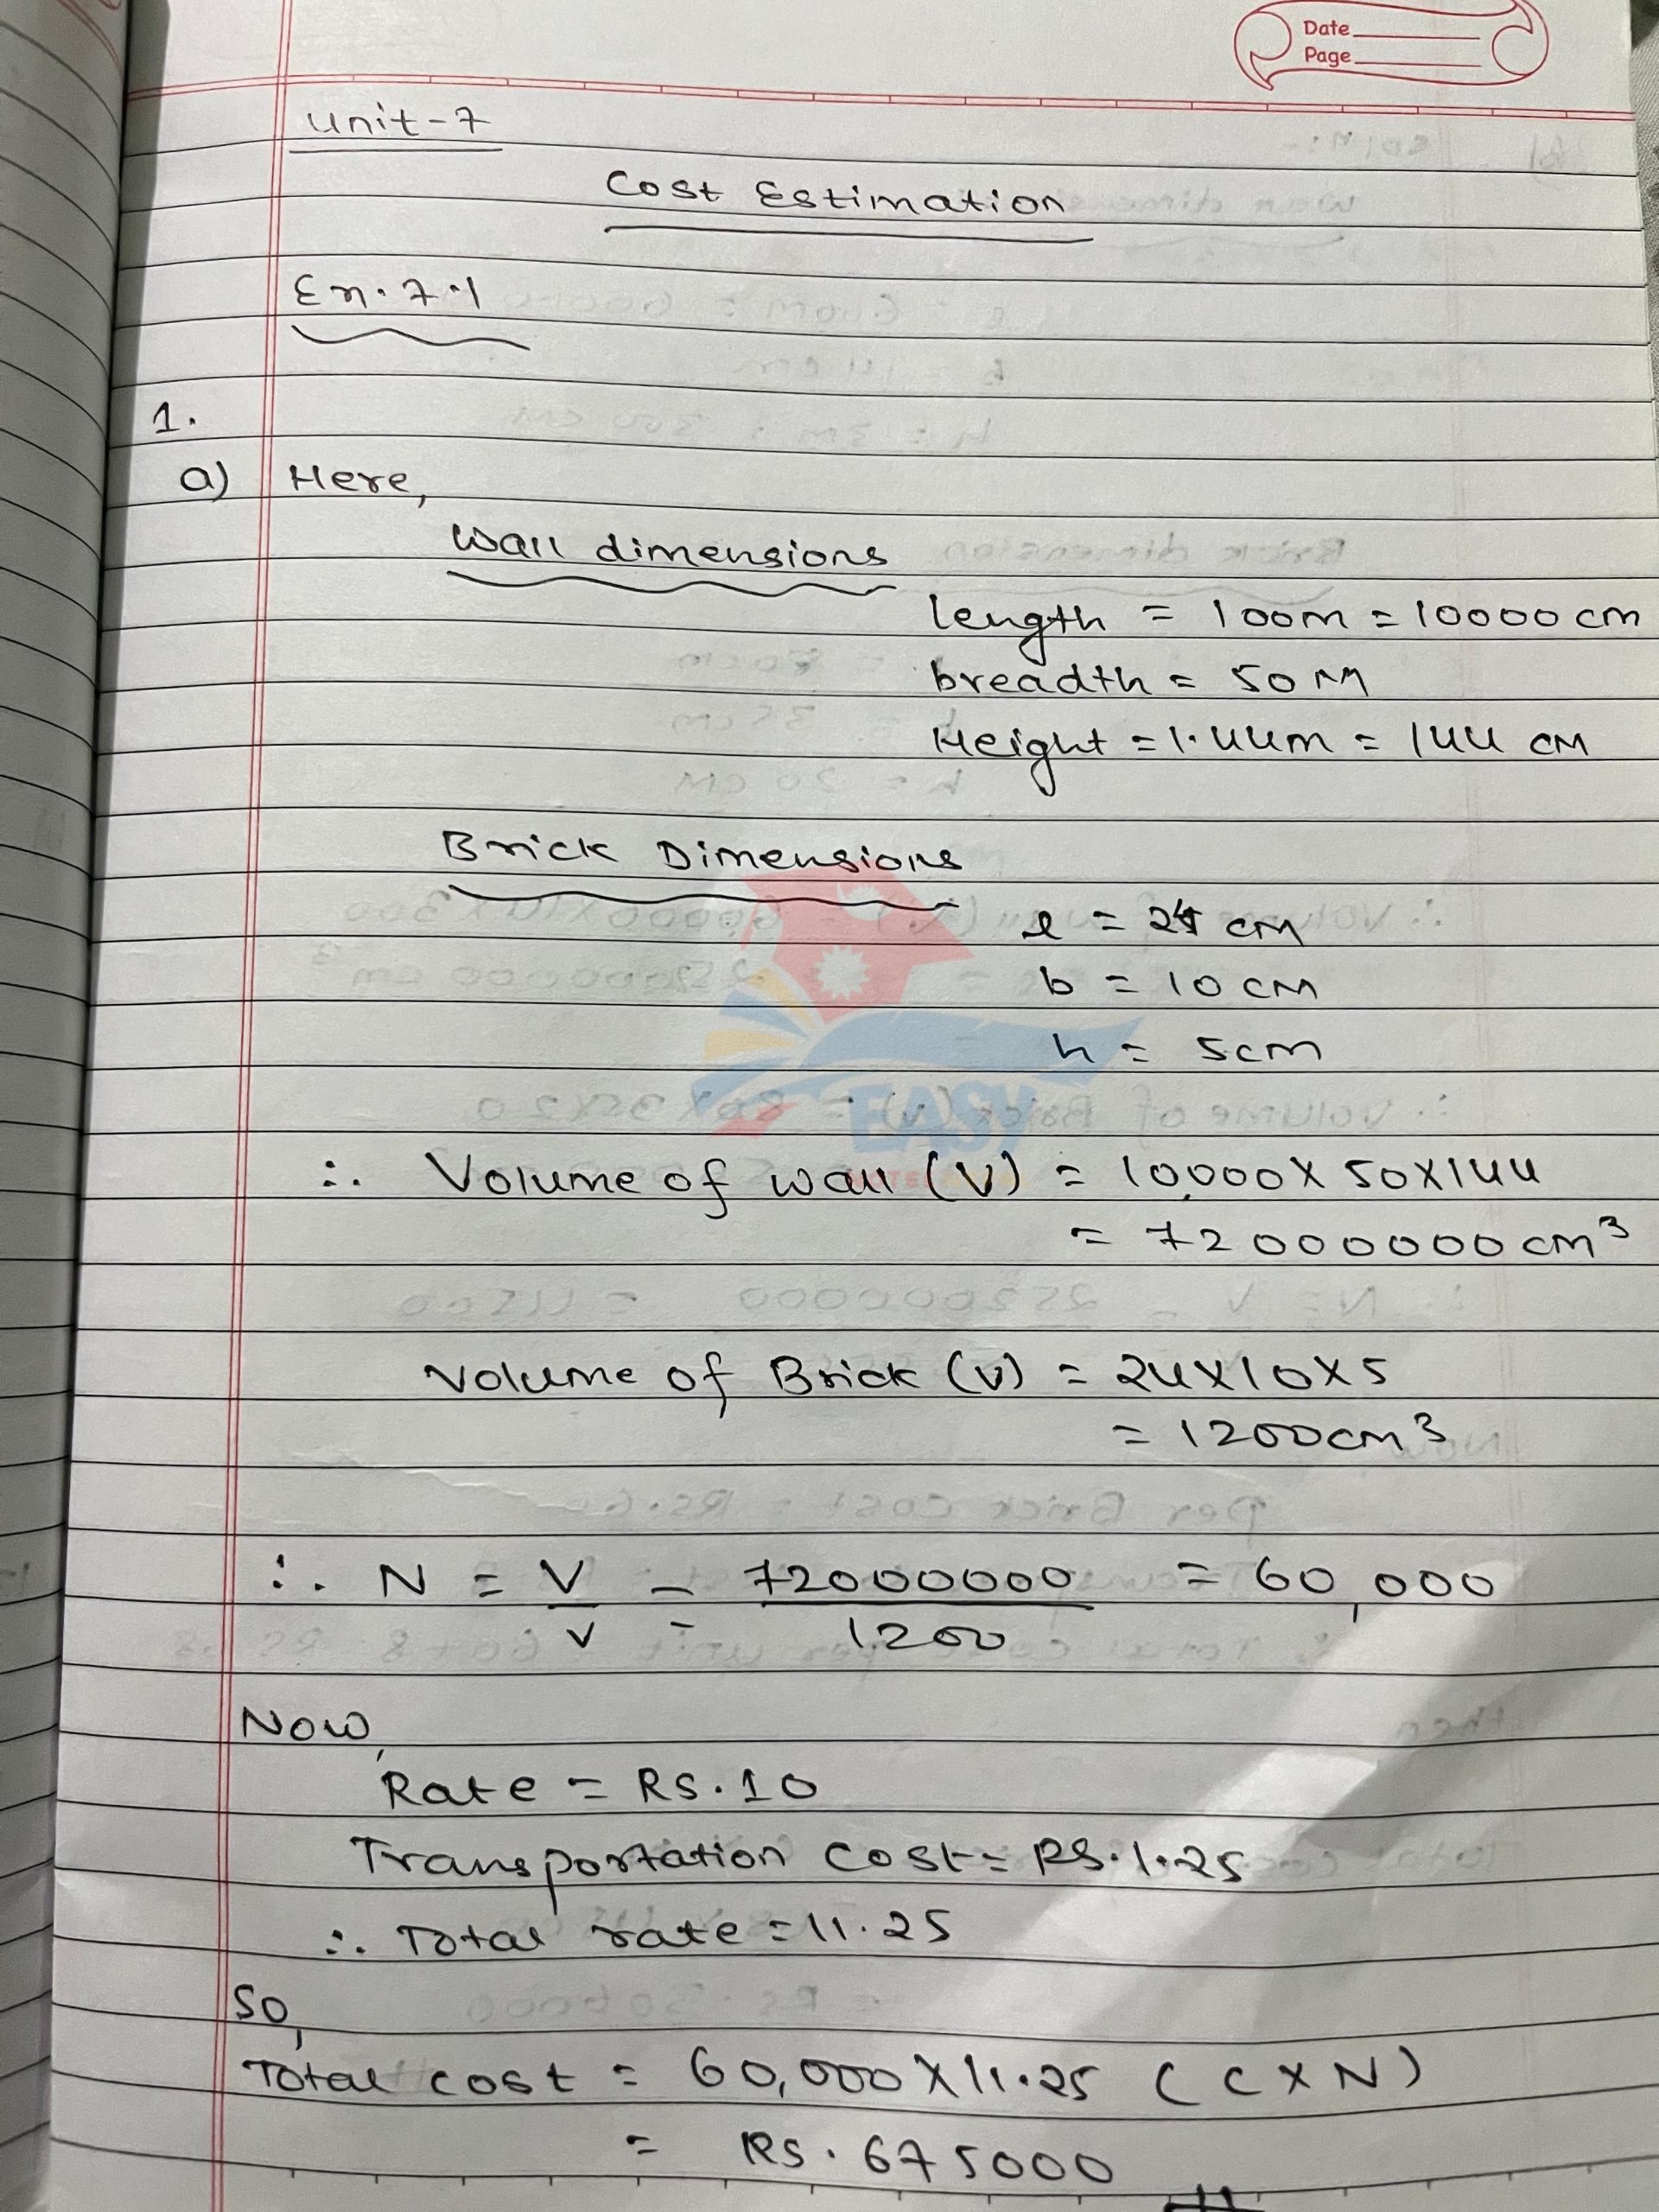 Date
Page
Unit-7
Cost Estimation
Ex. 7.1
1.
a) Here,
Wall dimensions
length = 100m = 10000 cm
breadth = 50 M
Height = 1.44m = 144 cm
Brick Dimensions
l = 24 cm
b = 10 cm
h = 5cm
∴ Volume of wall (V) = 10,000 X 50X144
= 72000000 cm³
Volume of Brick (v) = 24X10X5
= 1200cm³
∴ N = V/v = 72000000/1200 = 60,000
Now,
Rate = RS.10
Transportation Cost = RS.1.25
∴ Total rate = 11.25
SO,
Total cost = 60,000 X 11.25 (C X N)
= RS. 675000
EASY